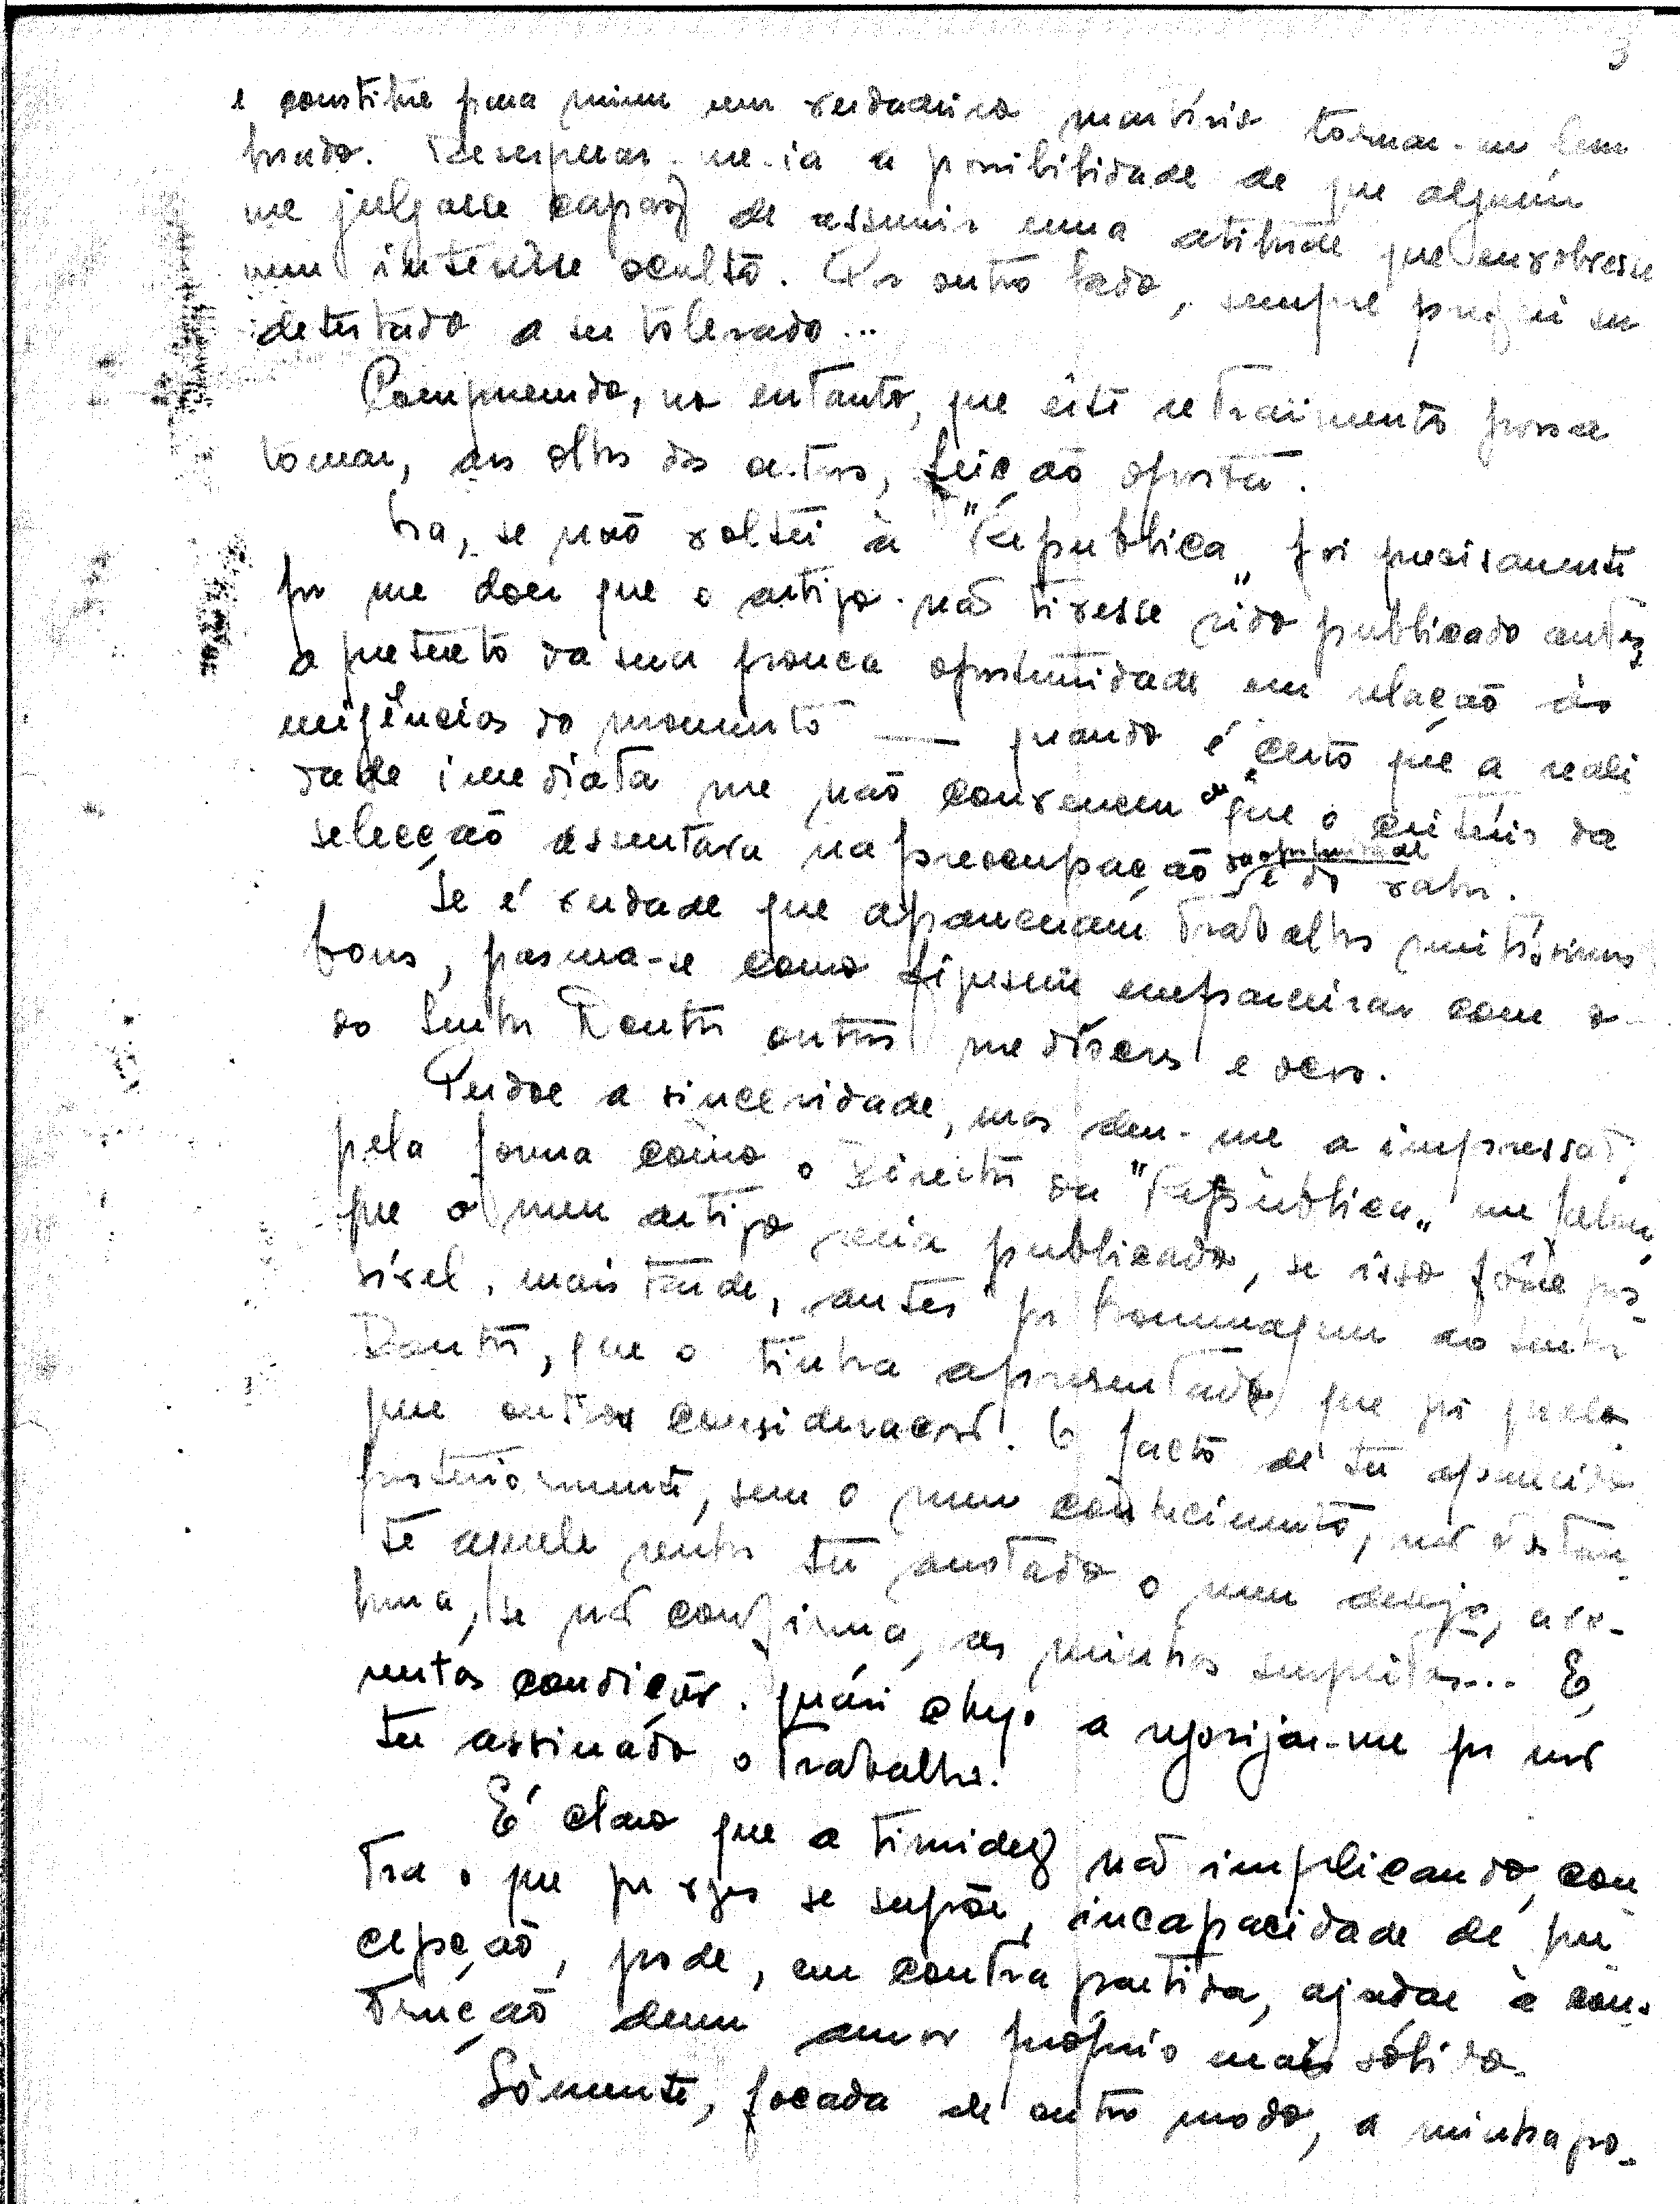 3
e constitue para mim um verdadeiro martírio tornar-me lem
brado. Desesperar-me-ia a possibilidade de que alguém
me julgasse capaz de assumir uma atitude que envolvesse
um interêsse oculto. Por outro lado, sempre preferi ser
detestado a ser tolerado...
Compreendo, no entanto, que êste retraimento possa
tomar, aos olhos dos outros, feição oposta.
Ora, se não voltei à "República„ foi precisamente
por me doer que o artigo não tivesse sido publicado antes,
a pretexto da sua pouca oportunidade em relação às
exigências do momento — quando é certo que a reali
dade imediata me não convenceu de que o critério da
selecção assentava na preocupação se do valor.
Se é verdade que apareceram trabalhos muitíssimo
bons, pasma-se como fizessem emparceirar com o
do Senhor Doutor outros medíocres e ocos.
Perdoe a sinceridade, mas deu-me a impressão,
pela forma como o Director da "República„ me falou,
que o meu artigo seria publicado, se isso fôsse pos-
sível, mais tarde, antes por homenagem ao Senhor
Doutor, que o tinha apresentado, que por quais
quer outras considerações. O facto de ter aparecido
posteriormente, sem o meu conhecimento, não obstan-
te aquele senhor ter anotado o meu desejo, avo-
luma, se não confirma, as minhas suspeitas... E,
nestas condições, quási chego a regosijar-me por não
ter assinado o trabalho.
É claro que a timidez não implicando, con
tra o que por vezes se supõe, incapacidade de per
cepção, pode, em contra partida, ajudar à cons
trução dum amor próprio mais sólido.
Sòmente, focada de outro modo, a minha po-